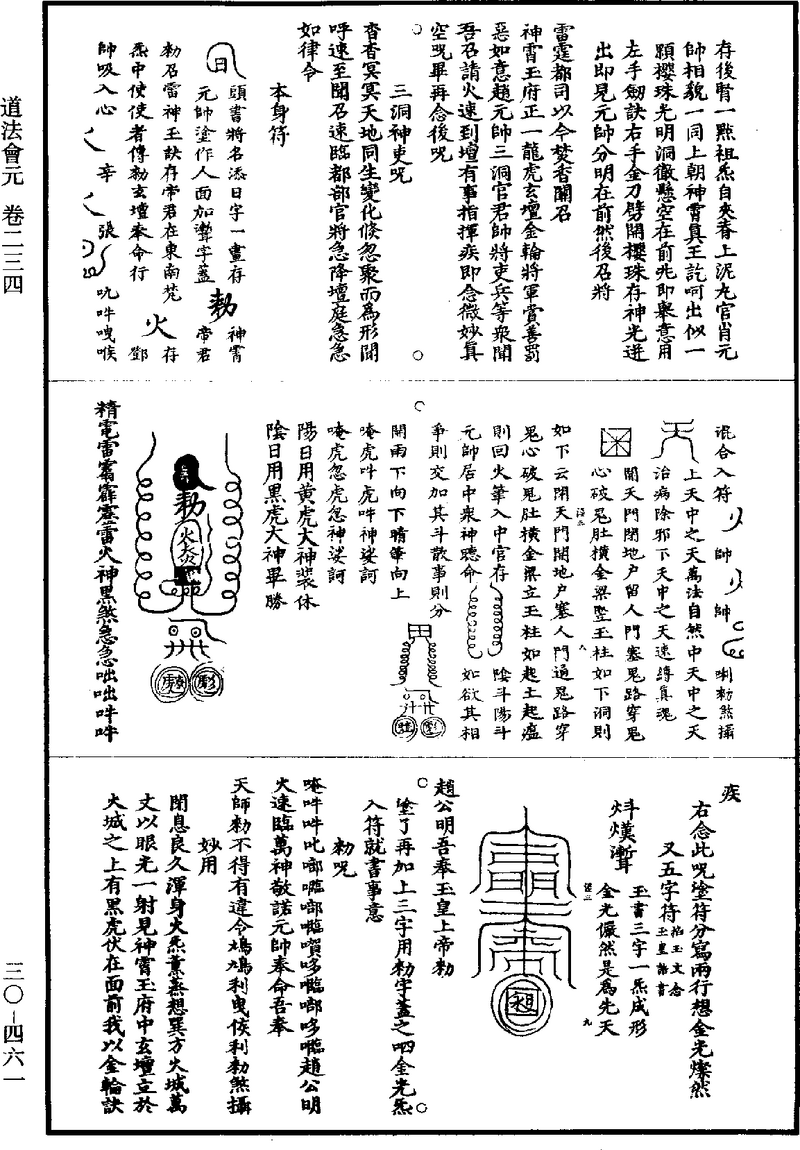 道法會元 卷二三四
三〇-四六一
存後腎一點祖炁自夾脊上泥丸宮肖元
帥相貌一同上朝神霄真王訖呵出似一
顆櫻珠光明洞徹懸空在前兆即舉意用
左手劍訣右手金刀劈開櫻珠存神光迸
出即見元帥分明在前然後召將
雷霆都司以今焚香關召
神霄玉府正一龍虎玄壇金輪將軍賞善罰
惡如意趙元帥三洞官君師將吏兵等衆聞
吾召請火速到壇有事指揮疾即念微妙真
空呪畢再念後呪
三洞神吏呪
杳杳冥冥天地同生變化倏忽聚而為形聞
呼速至聞召速臨都部官將急降壇庭急急
如律令
本身符
頭書將名添日字一畫存
元帥塗作人面加聻字蓋
勑 神霄
帝君
勑召雷神玉訣存帝君在東南梵
火 存
炁中使使者傳勑玄壇奉命行
鄧
師吸入心
辛
張
吭吽曳喉
混合入符
帥
帥
唎勑煞攝
上天中之天萬法自然中天中之天
治病除邪下天中之天速縛真魂
開天門閉地户留人門塞鬼路穿鬼
心破鬼肚橫金梁竪玉柱如下洞則
如下云閉天門開地户塞人門通鬼路穿
鬼心破鬼肚橫金梁立玉柱如起土起瘟
則回火筆入中宮存
陰斗陽斗
元帥居中衆神聽命
如欲其相
爭則交加其斗散事則分
開雨下向下晴筆向上
唵虎吽虎吽神娑訶
唵虎忽虎忽神娑訶
陽日用黃虎大神裴休
陰日用黑虎大神畢勝
勑
火
精電雷霹靂雷火神黑煞急急咄咄吽吽
疾
右念此呪塗符分寫兩行想金光燦然
又五字符
掐玉文念
玉皇誥書
玉書三字一炁成形
金光儼然是為先天
趙公明吾奉玉皇上帝勑
塗了再加上三字用勑字蓋之呬金光炁
入符就書事意
勑呪
唵吽吽吡啷𠽤啷𠽤嗊哆𠽤啷哆𠽤趙公明
火速臨萬神敬諾元帥奉命吾奉
天師勑不得有違令鳩鳩利曳俟利勑煞攝
妙用
閉息良久渾身火炁薰蒸想巽方火城萬
丈以眼光一射見神霄玉府中玄壇立於
火城之上有黑虎伏在面前我以金輪訣